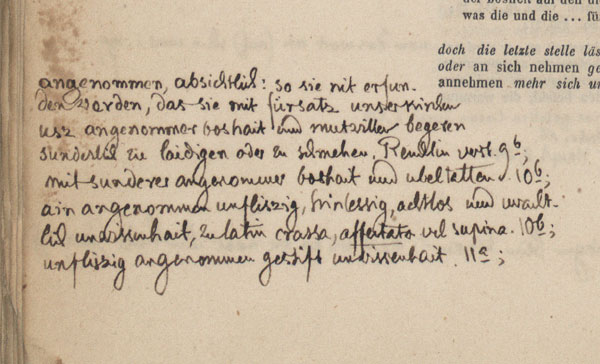 der bosheit auf den
was die und die ...
doch die letzte stelle
oder an sich nehmen
annehmen mehr sich
angenommen, absichtlich: so sie nit erfun-
den worden, das sie mit fürsatz unser kinder
usz angenommer boshait und mutwillen begeren
sunderlich zu laidigen oder zu schmehen. Reuchlin verst. 9b;
mit sunderer angenommer boshait und ubeltatten. 10b;
ain angenommen unfliszig, hinlessig, achtlos und
lich unwissenhait, zu latin crassa, affectata vel supina. 10b;
unfliszig angenommen gestift unwissenhait. 11a;